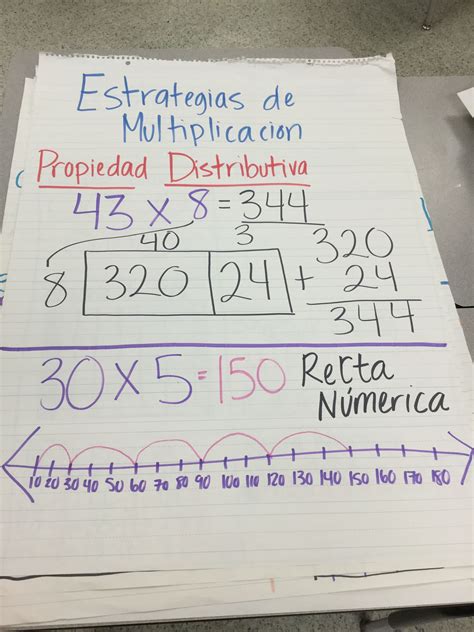 Estrategias de
Multiplicacion
Propiedad Distributiva
43 x 8 = 344
40 3 320
8 320 24 + 24
344
30 x 5 = 150 Recta
Númerica
10 20 30 40 50 60 70 80 90 100 110 120 130 140 150 160 170 180